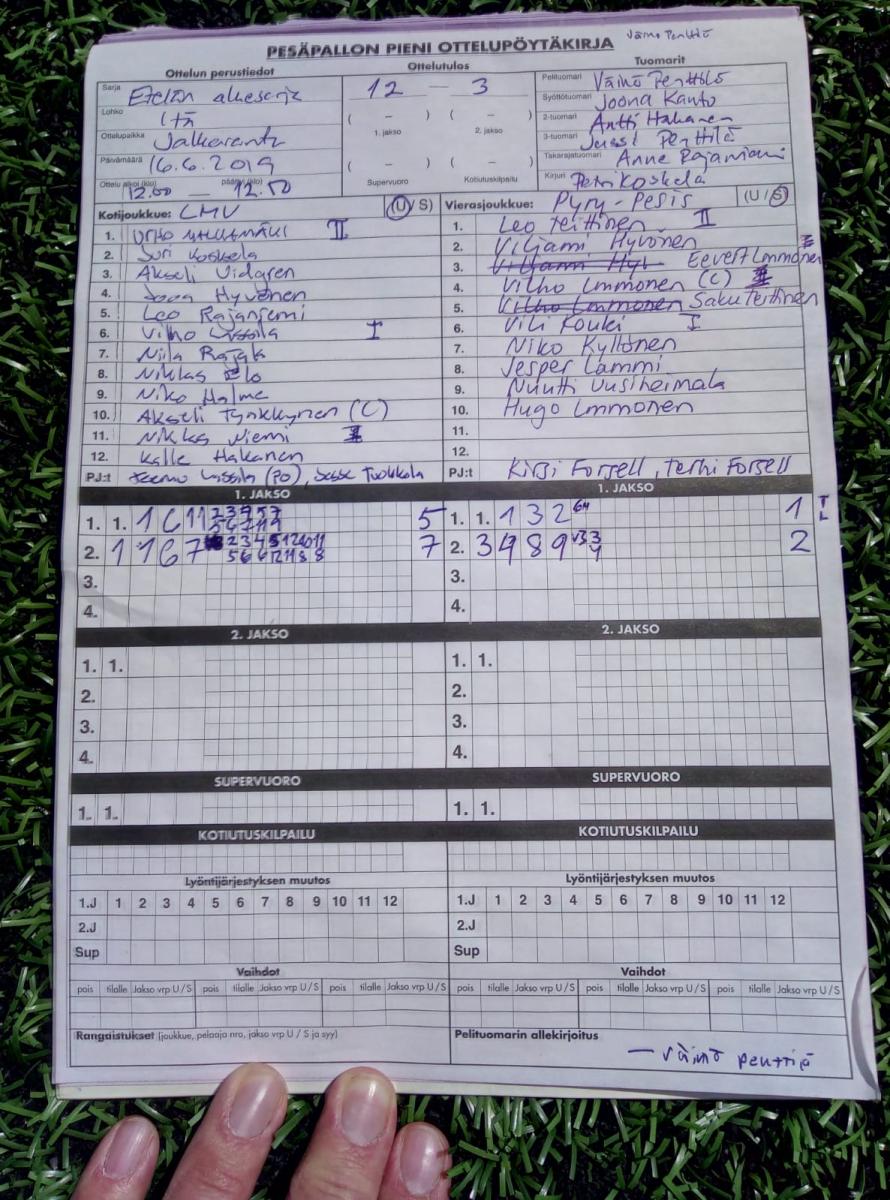 Väinö Penttilä
PESÄPALLON PIENI OTTELUPÖYTÄKIRJA
Ottelun perustiedot Ottelutulos Tuomarit
Sarja Etelän aluesarja 12 — 3 Pelituomari Väinö Penttilä
Lohko Itä ( – ) ( – ) Syöttötuomari Joona Kanto
1. jakso 2. jakso 2-tuomari Antti Hakanen
Ottelupaikka Jalkaranta 3-tuomari Jussi Penttilä
Päivämäärä 16.6.2019 ( – ) ( – ) Takarajatuomari Anne Rajaniemi
Ottelu alkoi (klo) 12.00 — päättyi (klo) 12.50 Supervuoro Kotiutuskilpailu Kirjuri Petri Koskela
Kotijoukkue: LMV (U / S) Vierasjoukkue: Pyry-Pesis (U / S)
1. Urho II 1. Leo Teittinen II
2. Juri Koskela 2. Viljami Hyvönen
3. Akseli Vidgren 3. Viljami Hyv Eevert Immonen
4. Joona Hyvönen 4. Vilho Immonen (C)
5. Leo Rajaniemi 5. Vilho Immonen Saku Teittinen
6. Vilho Lassila I 6. Vili Kouki I
7. Niila Rajala 7. Niko Kyllönen
8. Niklas Elo 8. Jesper Lammi
9. Niko Halme 9. Nuutti Uusiheimala
10. Akseli Tynkkynen (C) 10. Hugo Immonen
11. Niklas Niemi 11.
12. Kalle Hakanen 12.
PJ:t Teemu Lassila (PO), Jesse Tuokkola PJ:t Kirsi Forsell, Terhi Forsell
1. JAKSO 1. JAKSO
1. 1. 1 6 11 5 1. 1. 1 3 2 1
2. 1 1 6 7 7 2. 3 4 8 9 2
3. 3.
4. 4.
2. JAKSO 2. JAKSO
1. 1. 1. 1.
2. 2.
3. 3.
4. 4.
SUPERVUORO SUPERVUORO
1. 1. 1. 1.
KOTIUTUSKILPAILU KOTIUTUSKILPAILU
Lyöntijärjestyksen muutos Lyöntijärjestyksen muutos
1.J 1 2 3 4 5 6 7 8 9 10 11 12 1.J 1 2 3 4 5 6 7 8 9 10 11 12
2.J 2.J
Sup Sup
Vaihdot Vaihdot
pois tilalle Jakso vrp U / S pois tilalle Jakso vrp U / S pois tilalle Jakso vrp U / S pois tilalle Jakso vrp U / S pois tilalle Jakso vrp U / S pois tilalle Jakso vrp U / S
Rangaistukset (joukkue, pelaaja nro, jakso vrp U / S ja syy) Pelituomarin allekirjoitus
— Väinö Penttilä